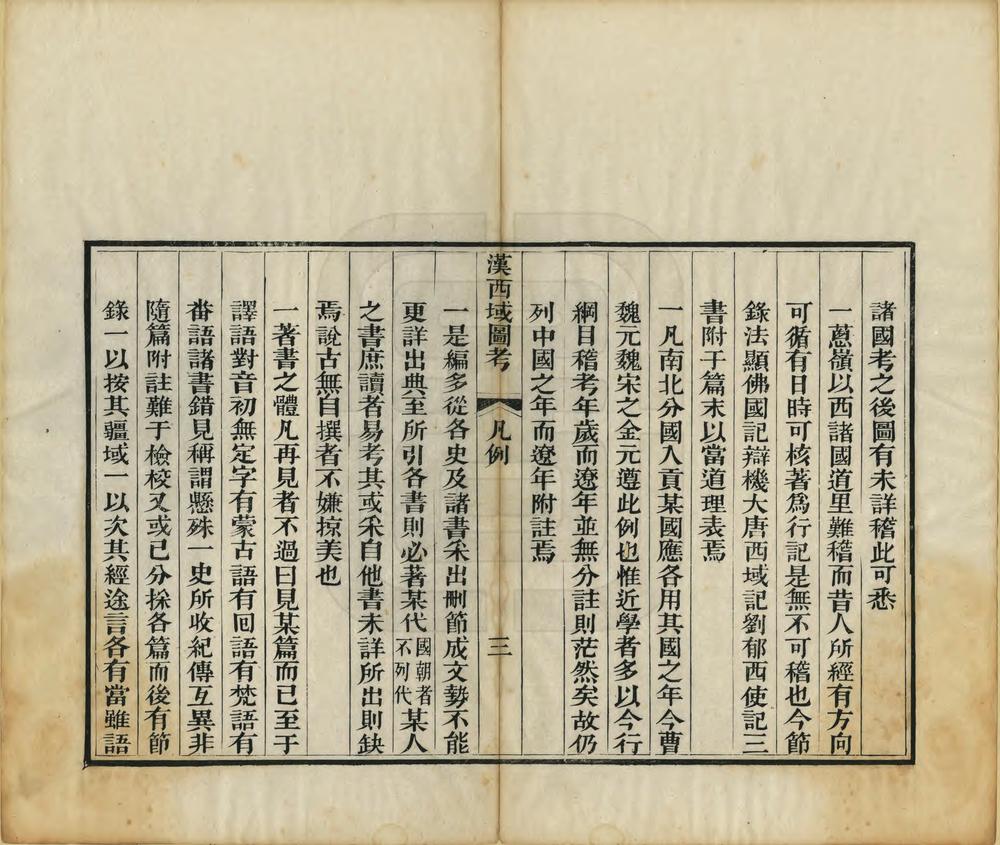 諸國考之後圖有未詳稽此可悉
一蔥嶺以西諸國道里難稽而昔人所經有方向
可循有日時可核著為行記是無不可稽也今節
錄法顯佛國記辯機大唐西域記劉郁西使記三
書附于篇末以當道理表焉
一凡南北分國入貢某國應各用其國之年今曹
魏元魏宋之金元遵此例也惟近學者多以今行
綱目稽考年歲而遼年並無分註則茫然矣故仍
列中國之年而遼年附註焉
漢西域圖考 凡例 三
一是編多從各史及諸書釆出刪節成文勢不能
更詳出典至所引各書則必著某代國朝者不列代某人
之書庶讀者易考其或釆自他書未詳所出則缺
焉說古無自撰者不嫌掠美也
一著書之體凡再見者不過曰見某篇而已至于
譯語對音初無定字有蒙古語有回語有梵語有
畨語諸書錯見稱謂懸殊一史所收紀傳互異非
隨篇附註難于檢校又或已分採各篇而後有節
錄一以按其疆域一以次其經途言各有當雖語